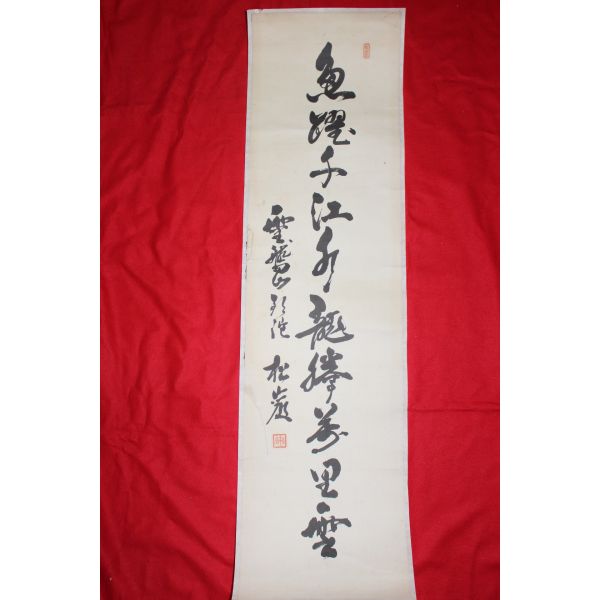 魚躍千江水龍騰萬里雲
靈鷲山 松巖